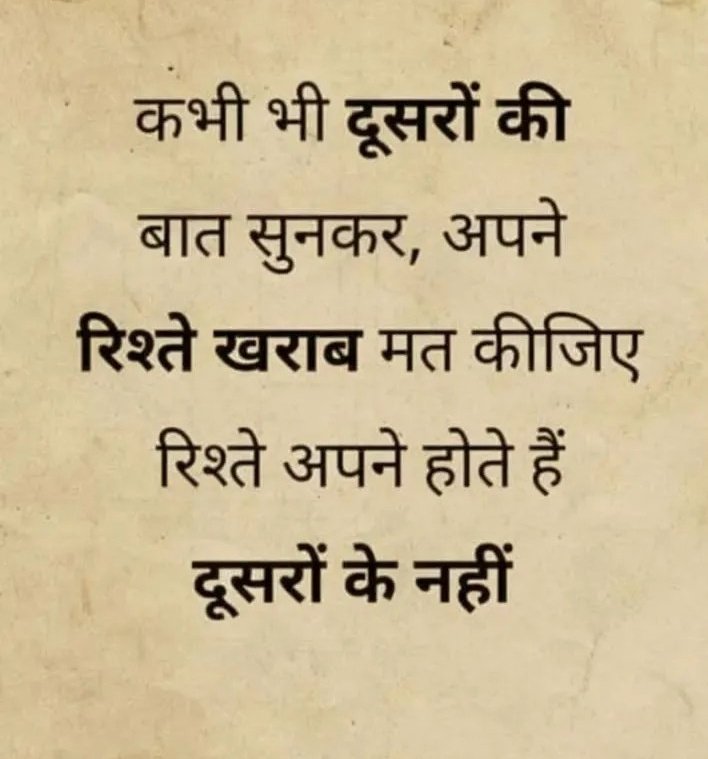 कभी भी दूसरों की
बात सुनकर, अपने
रिश्ते खराब मत कीजिए
रिश्ते अपने होते हैं
दूसरों के नहीं